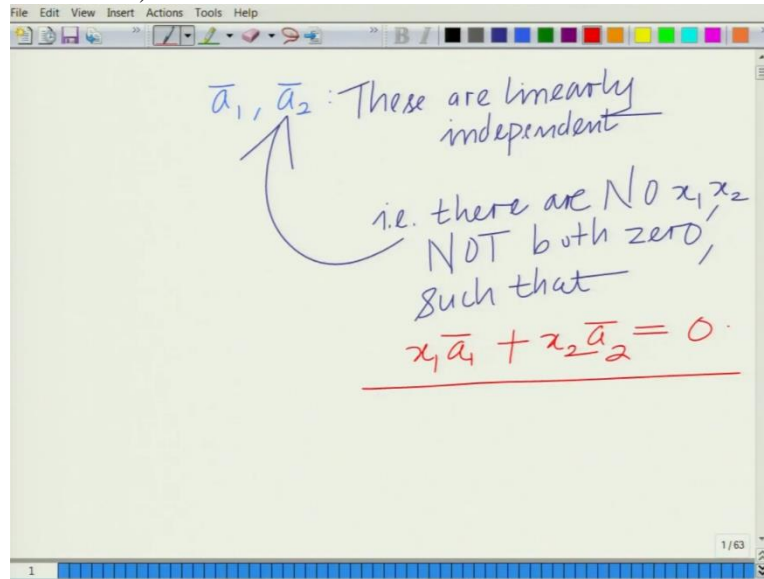 File Edit View Insert Actions Tools Help
B I
a̅₁, a̅₂ : These are linearly
independent
i.e. there are NO x₁, x₂
NOT both zero,
such that
x₁a̅₁ + x₂a̅₂ = 0.
1/63
1